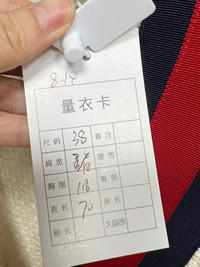 8.14
量衣卡
尺码 38 备注
肩宽 腰围
胸围 118 臀围
衣长 70 裤长
袖长 大腿围